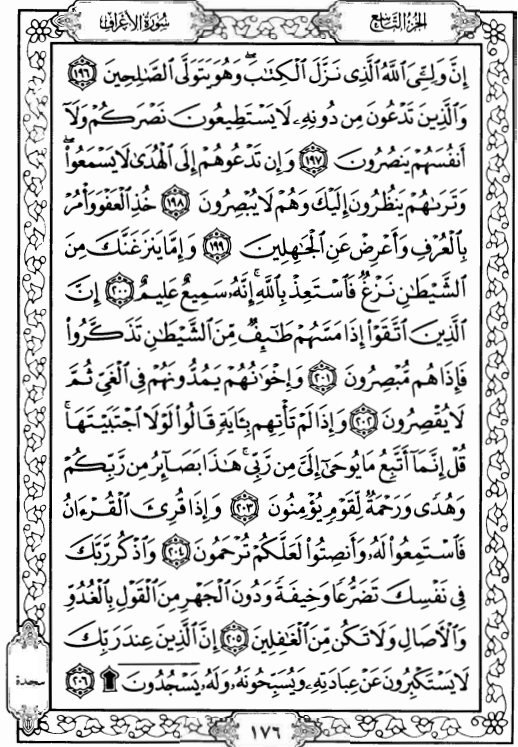 سُورَةُ الأَعْرَافِ
الجُزْءُ التَّاسِعُ
إِنَّ وَلِـِّۧىَ ٱللَّهُ ٱلَّذِى نَزَّلَ ٱلْكِتَٰبَ ۖ وَهُوَ يَتَوَلَّى ٱلصَّٰلِحِينَ ١٩٦
وَٱلَّذِينَ تَدْعُونَ مِن دُونِهِۦ لَا يَسْتَطِيعُونَ نَصْرَكُمْ وَلَآ
أَنفُسَهُمْ يَنصُرُونَ ١٩٧ وَإِن تَدْعُوهُمْ إِلَى ٱلْهُدَىٰ لَا يَسْمَعُوا۟ ۖ
وَتَرَىٰهُمْ يَنظُرُونَ إِلَيْكَ وَهُمْ لَا يُبْصِرُونَ ١٩٨ خُذِ ٱلْعَفْوَ وَأْمُرْ
بِٱلْعُرْفِ وَأَعْرِضْ عَنِ ٱلْجَٰهِلِينَ ١٩٩ وَإِمَّا يَنزَغَنَّكَ مِنَ
ٱلشَّيْطَٰنِ نَزْغٌ فَٱسْتَعِذْ بِٱللَّهِ ۚ إِنَّهُۥ سَمِيعٌ عَلِيمٌ ٢٠٠ إِنَّ
ٱلَّذِينَ ٱتَّقَوْا۟ إِذَا مَسَّهُمْ طَٰٓئِفٌ مِّنَ ٱلشَّيْطَٰنِ تَذَكَّرُوا۟
فَإِذَا هُم مُّبْصِرُونَ ٢٠١ وَإِخْوَٰنُهُمْ يَمُدُّونَهُمْ فِى ٱلْغَىِّ ثُمَّ
لَا يُقْصِرُونَ ٢٠٢ وَإِذَا لَمْ تَأْتِهِم بِـَٔايَةٍ قَالُوا۟ لَوْلَا ٱجْتَبَيْتَهَا ۚ
قُلْ إِنَّمَآ أَتَّبِعُ مَا يُوحَىٰٓ إِلَىَّ مِن رَّبِّى ۚ هَٰذَا بَصَآئِرُ مِن رَّبِّكُمْ
وَهُدًى وَرَحْمَةٌ لِّقَوْمٍ يُؤْمِنُونَ ٢٠٣ وَإِذَا قُرِئَ ٱلْقُرْءَانُ
فَٱسْتَمِعُوا۟ لَهُۥ وَأَنصِتُوا۟ لَعَلَّكُمْ تُرْحَمُونَ ٢٠٤ وَٱذْكُر رَّبَّكَ
فِى نَفْسِكَ تَضَرُّعًا وَخِيفَةً وَدُونَ ٱلْجَهْرِ مِنَ ٱلْقَوْلِ بِٱلْغُدُوِّ
وَٱلْءَاصَالِ وَلَا تَكُن مِّنَ ٱلْغَٰفِلِينَ ٢٠٥ إِنَّ ٱلَّذِينَ عِندَ رَبِّكَ
لَا يَسْتَكْبِرُونَ عَنْ عِبَادَتِهِۦ وَيُسَبِّحُونَهُۥ وَلَهُۥ يَسْجُدُونَ ۩ ٢٠٦
سجدة
١٧٦